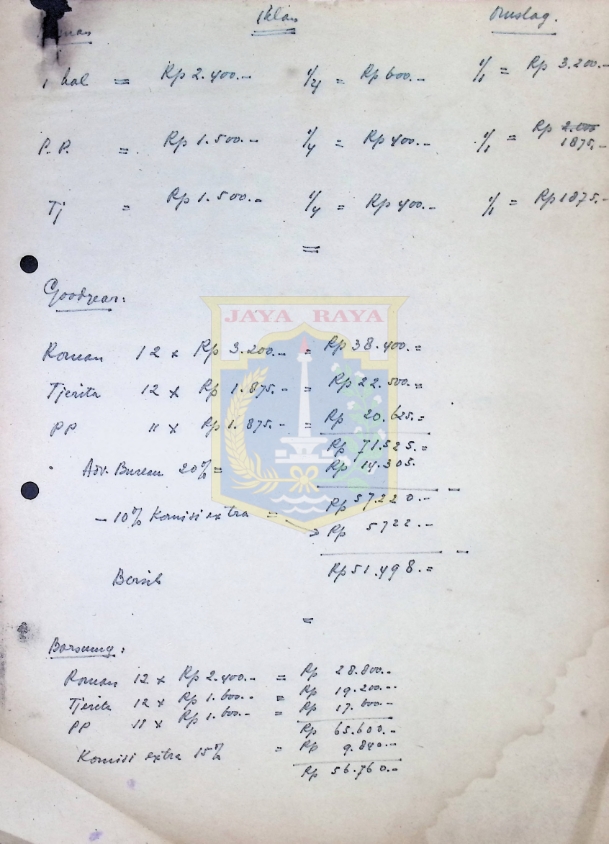 Iklan Omslag.
1 hal = Rp 2.400.- 1/4 = Rp 600.- 1/1 = Rp 3.200.-
P.P. = Rp 1.500.- 1/4 = Rp 400.- 1/1 = Rp 2.000
1875.-
Tj = Rp 1.500.- 1/4 = Rp 400.- 1/1 = Rp 1875.-
=
Goodyear:
JAYA RAYA
Roman 12 x Rp 3.200.- = Rp 38.400.=
Tjerita 12 x Rp 1.875.- = Rp 22.500.=
PP 11 x Rp 1.875.- = Rp 20.625.=
Rp 71.525.=
Adv. Bureau 20% = Rp 14.305.
Rp 57.220.-
- 10% Komisi extra = Rp 5722.-
Bersih Rp 51.498.=
=
Barsumy:
Roman 12 x Rp 2.400.- = Rp 28.800.-
Tjerita 12 x Rp 1.600.- = Rp 19.200.-
PP 11 x Rp 1.600.- = Rp 17.600.-
Rp 65.600.-
Komisi extra 15% = Rp 9.840.-
Rp 56.760.-